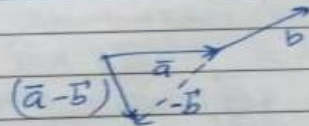 b
a̅
(a̅-b⃗)
-b⃗